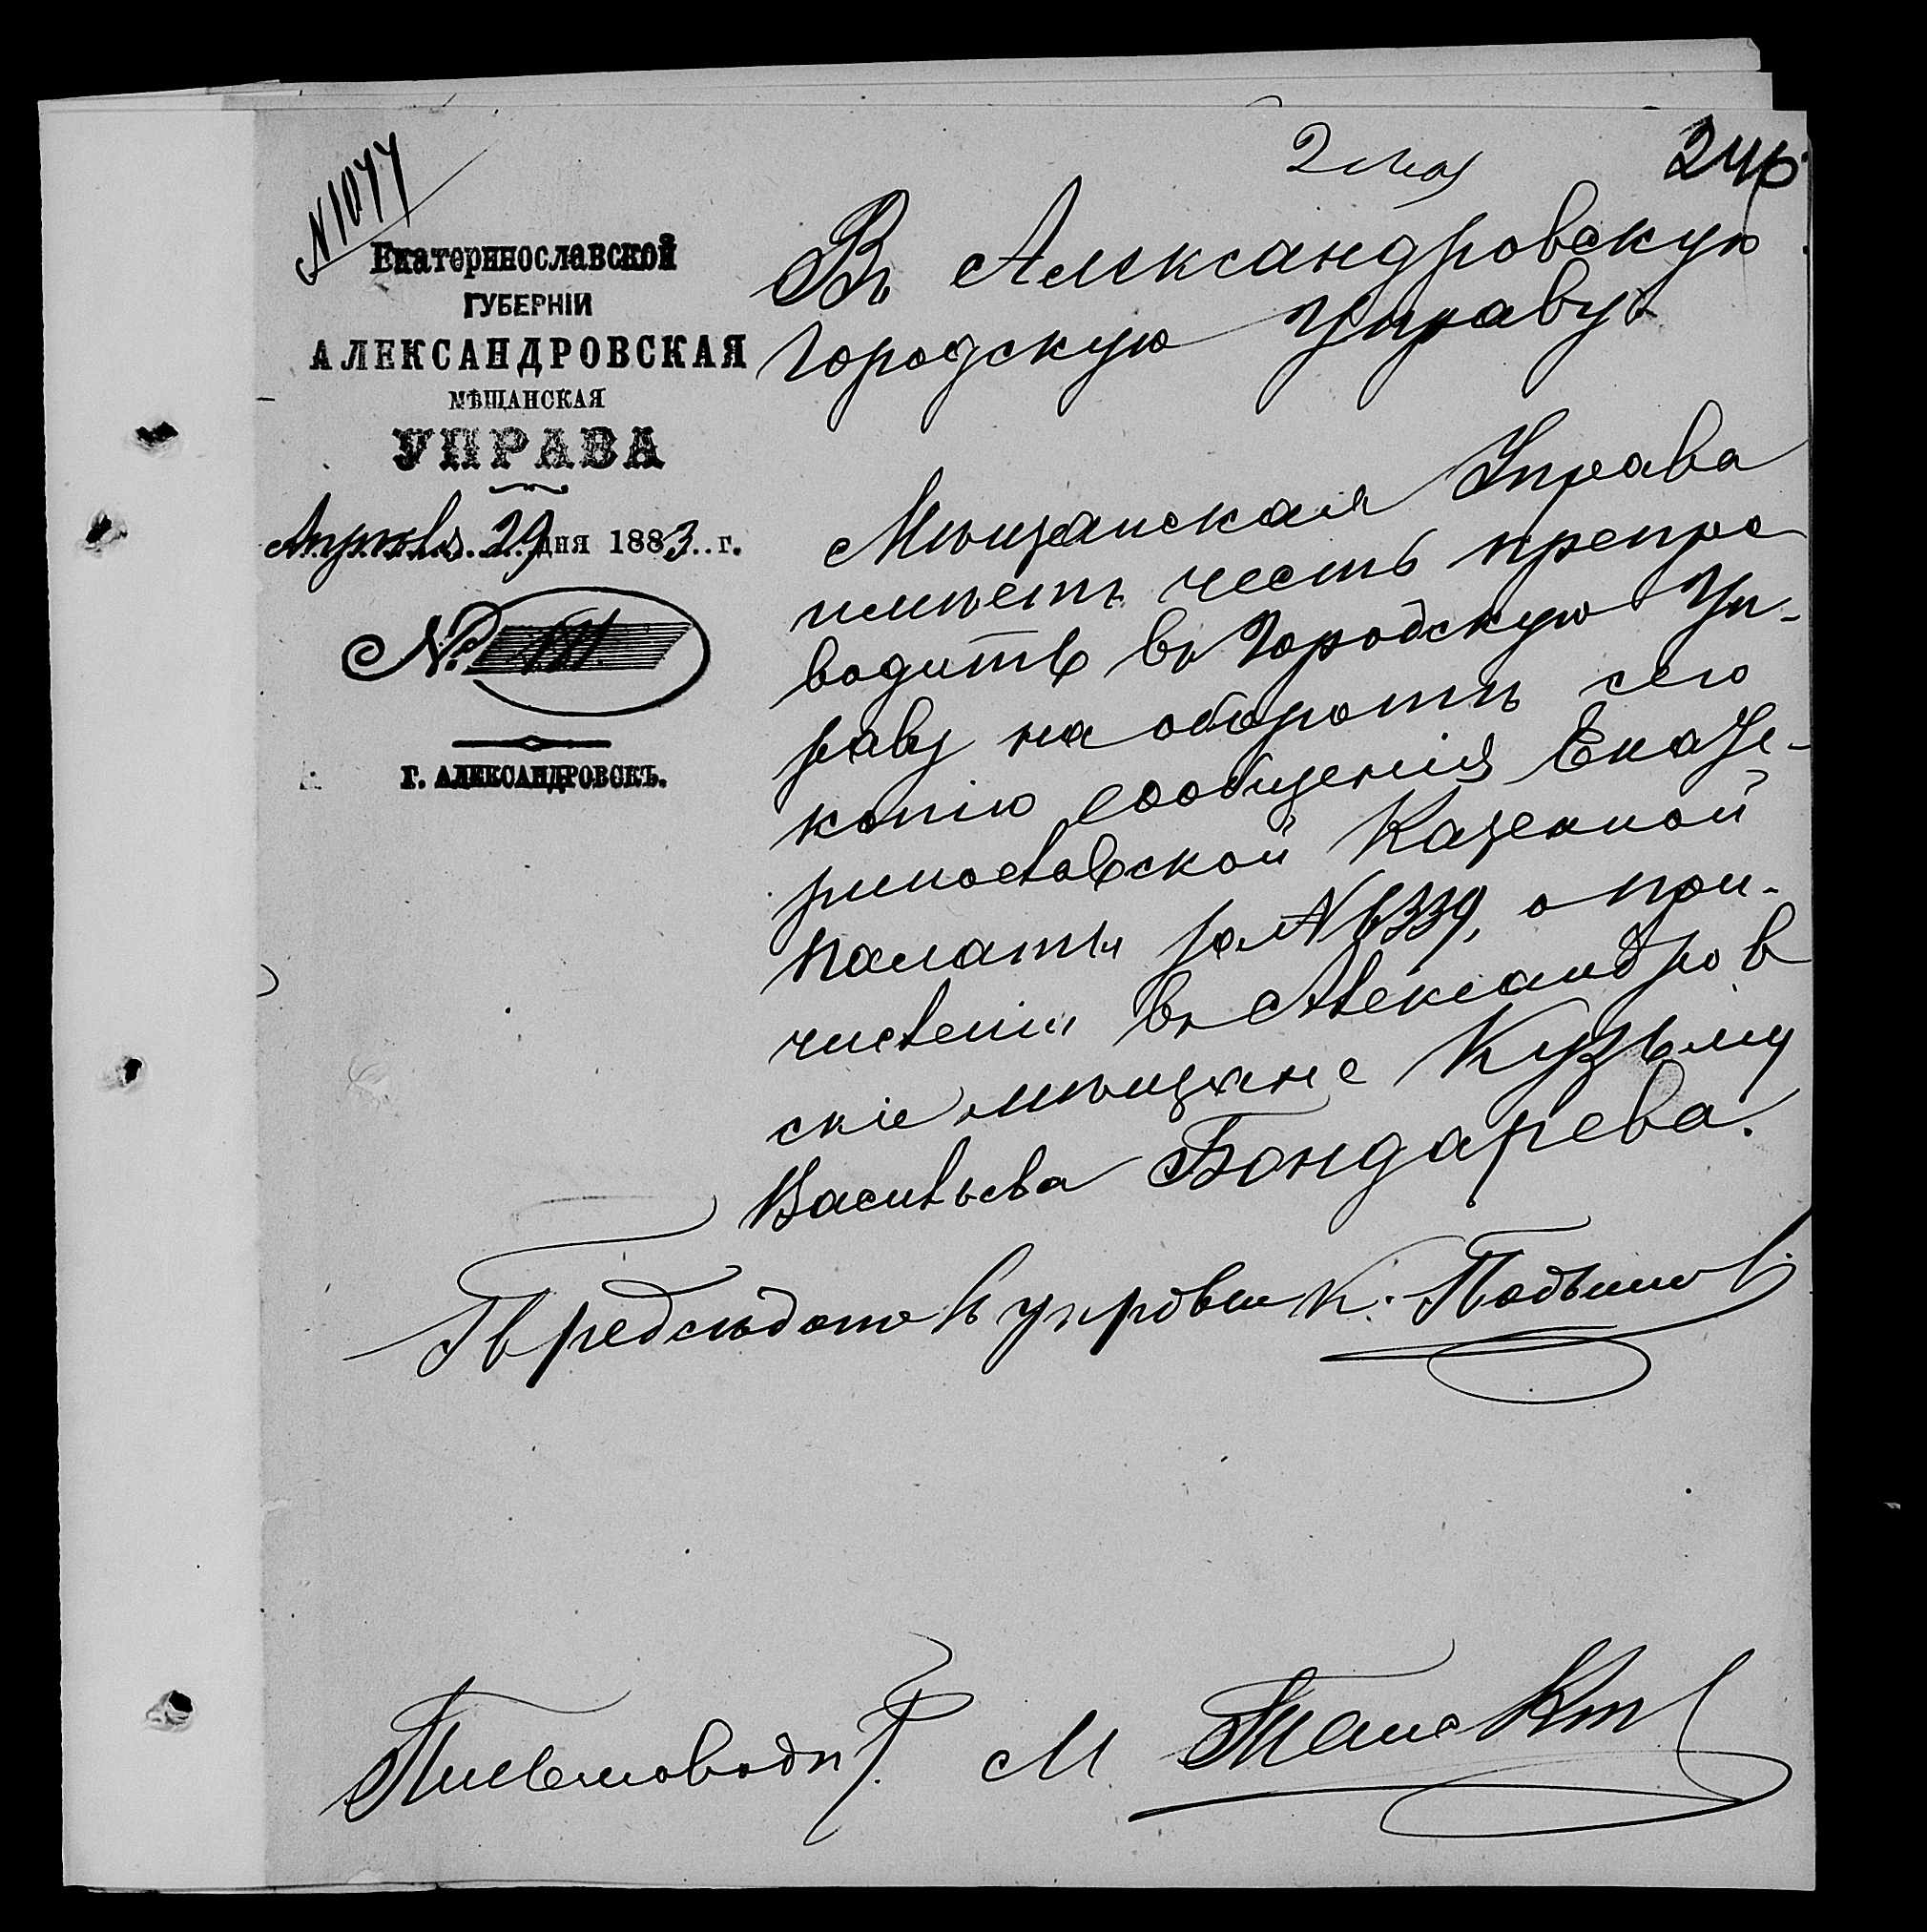 2 мая
246
N 1077
Екатеринославской
ГУБЕРНІИ
АЛЕКСАНДРОВСКАЯ
МѢЩАНСКАЯ
УПРАВА
Апрѣля 29 дня 1883 г.
№
Г. АЛЕКСАНДРОВСКЪ.
Въ Александровскую
Городскую Управу
Мѣщанская Управа
имѣетъ честь препро
водить въ Городскую Уп-
раву на оборотѣ сего
копію сообщенія Екате-
ринославской Казенной
Палаты за № 6339, о при-
численіи въ Александров
скіе мѣщане Кузьму
Васильева Бондарева.
Предсѣдатель управы К.
Письмоводи М.